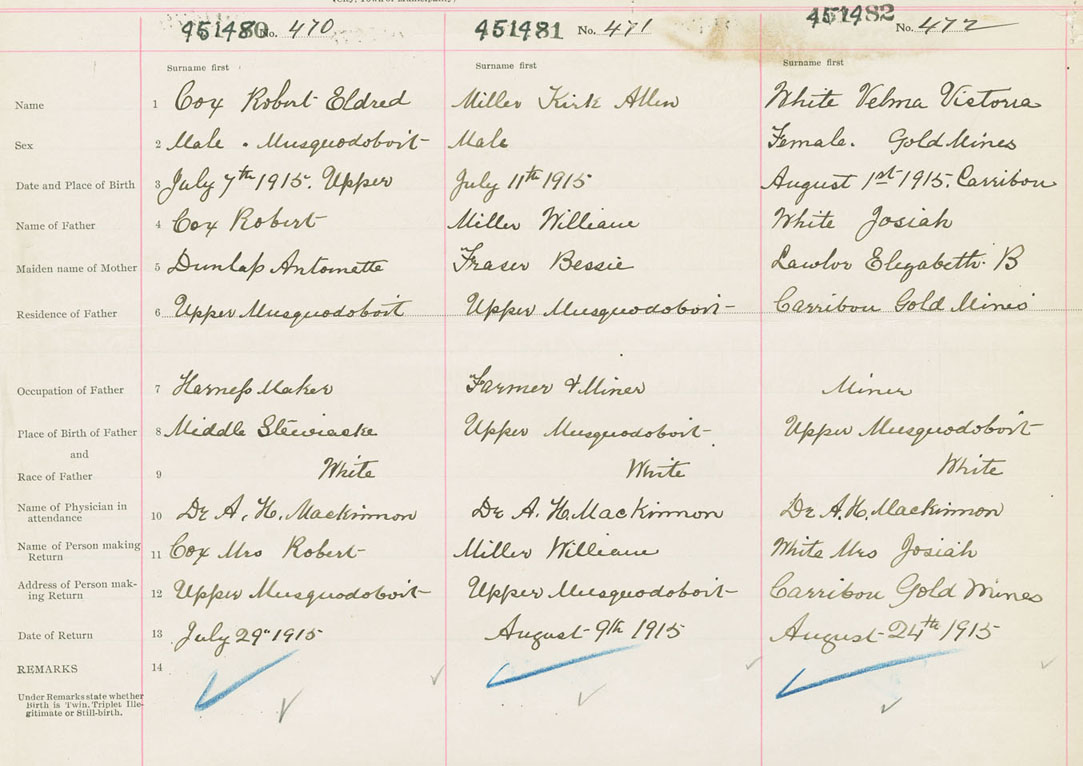 (City, Town or Municipality)
451480 No. 470 451481 No. 471 451482 No. 472
Surname first Surname first Surname first
Name 1 Cox Robert Eldred Miller Kirk Allen White Velma Victoria
Sex 2 Male . Musquodoboit Male Female. Gold Mines
Date and Place of Birth 3 July 7th 1915. Upper July 11th 1915 August 1st 1915. Carribou
Name of Father 4 Cox Robert Miller William White Josiah
Maiden name of Mother 5 Dunlap Antoinette Fraser Bessie Lawlor Elizabeth B
Residence of Father 6 Upper Musquodoboit Upper Musquodoboit Carribou Gold Mines
Occupation of Father 7 Harness Maker Farmer & Miner Miner
Place of Birth of Father 8 Middle Stewiacke Upper Musquodoboit Upper Musquodoboit
and
Race of Father 9 White White White
Name of Physician in
attendance 10 Dr A. H. Mackinnon Dr A. H. MacKinnon Dr A. H. Mackinnon
Name of Person making
Return 11 Cox Mrs Robert Miller William White Mrs Josiah
Address of Person mak-
ing Return 12 Upper Musquodoboit Upper Musquodoboit Carribou Gold Mines
Date of Return 13 July 29th 1915 August 9th 1915 August 24th 1915
REMARKS 14
Under Remarks state whether
Birth is Twin, Triplet Ille-
gitimate or Still-birth.